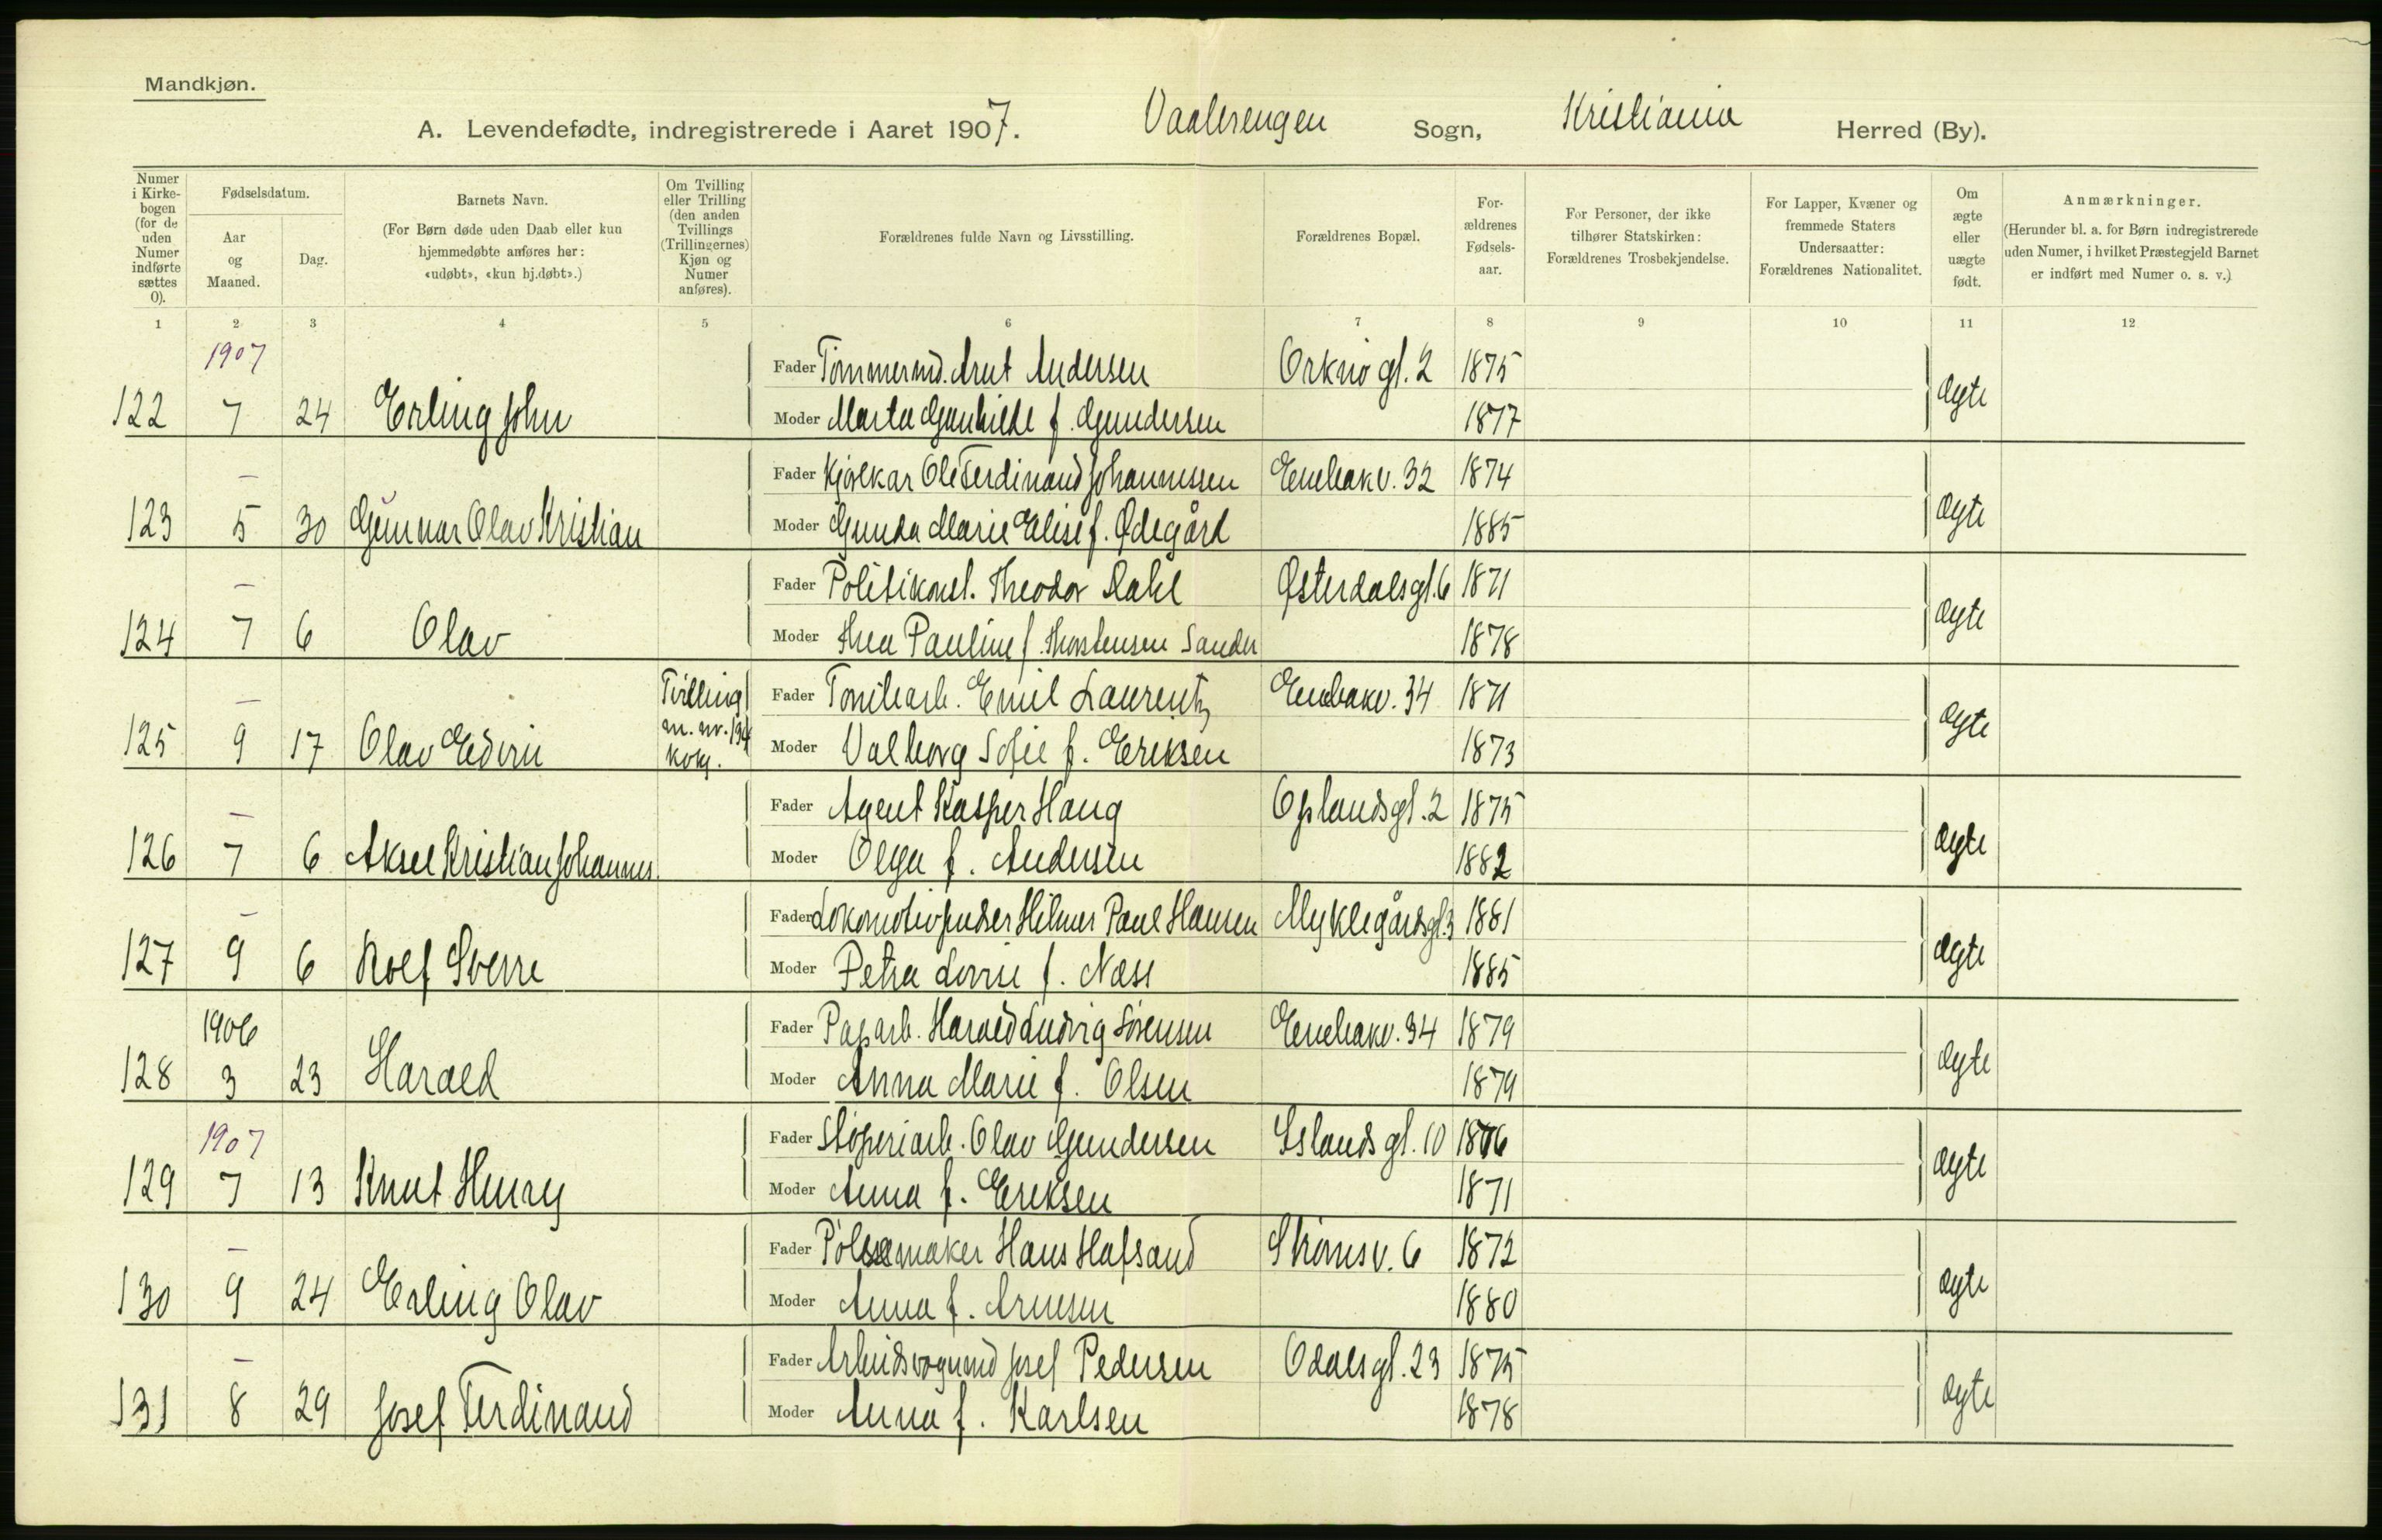 Mandkjøn.
A. Levendefødte, indregistrerede i Aaret 1907. Vaalerengen Sogn, Kristiania Herred (By).
Numer i Kirkebogen (for de uden Numer indførte sættes 0).
Fødselsdatum.
Aar og Maaned.
Dag.
Barnets Navn.
(For Børn døde uden Daab eller kun hjemmedøbte anføres her: «udøbt», «kun hj.døbt».)
Om Tvilling eller Trilling (den anden Tvillings (Trillingernes) Kjøn og Numer anføres).
Forældrenes fulde Navn og Livsstilling.
Forældrenes Bopæl.
Forældrenes Fødselsaar.
For Personer, der ikke tilhører Statskirken: Forældrenes Trosbekjendelse.
For Lapper, Kvæner og fremmede Staters Undersaatter: Forældrenes Nationalitet.
Om ægte eller uægte født.
Anmærkninger.
(Herunder bl. a. for Børn indregistrerede uden Numer, i hvilket Præstegjeld Barnet er indført med Numer o. s. v.)
1 2 3 4 5 6 7 8 9 10 11 12
1907 Fader Tømmermd. Arnt Andersen Orknø gt. 2 1875
122 7 24 Erling John Moder Marta Gunhilde f. Gundersen 1877 Ægte
— Fader Kjølkar Ole Ferdinand Johannessen Enebakv. 32 1874
123 5 30 Gunnar Olav Kristian Moder Gunda Marie Elise f. Ødegård 1885 Ægte
— Fader Politikonst. Theodor Dahl Østerdalsgt. 6 1871
124 7 6 Olav Moder Thea Pauline f. Thorstensen Sander 1878 Ægte
— Tvilling Fader Emil Laurentz Enebakv. 34 1871
125 9 17 Olav Edvin m. nr. Moder Valborg Sofie f. Eriksen 1873 Ægte
— Fader Agent Kasper Haug Oplandsgt. 2 1875
126 7 6 Aksel Kristian Johannes Moder Olga f. Andersen 1882 Ægte
— Fader Lokomotivpudser Hilmer Paul Hansen Myklegårdsgt. 3 1881
127 9 6 Rolf Sverre Moder Petra f. Næss 1885 Ægte
1906 Fader Paparb. Harald Ludvig Sørensen Enebakv. 34 1879
128 3 23 Harald Moder Anna Marie f. Olsen 1879 Ægte
1907 Fader Støperiarb. Olav Gundersen Islands gt. 10
129 7 13 Knut Henry Moder Anna f. Eriksen 1871 Ægte
— Fader Pølsemaker Hans Hafsand Strømsv. 6 1872
130 9 24 Erling Olav Moder Anna f. Arnesen 1880 Ægte
— Fader Arbeidsvognmd Josef Pedersen Odalsgt. 23 1875
131 8 29 Josef Ferdinand Moder Anna f. Karlsen 1878 Ægte